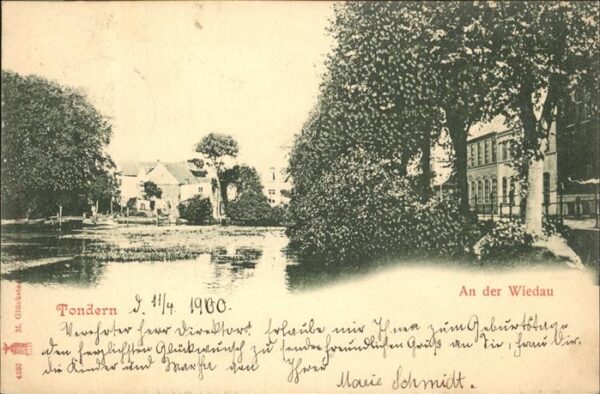 An der Wiedau
Tondern d. 11/4 1900.
Verehrter Herr Direktor! Erlaube mir Ihnen zum Geburtstag
den herzlichsten Glückwunsch zu senden freundlichen Gruß an Sie, Frau Dir.
die Kinder und Martha von Ihrer
Marie Schmidt.
M. Glückstad
4092